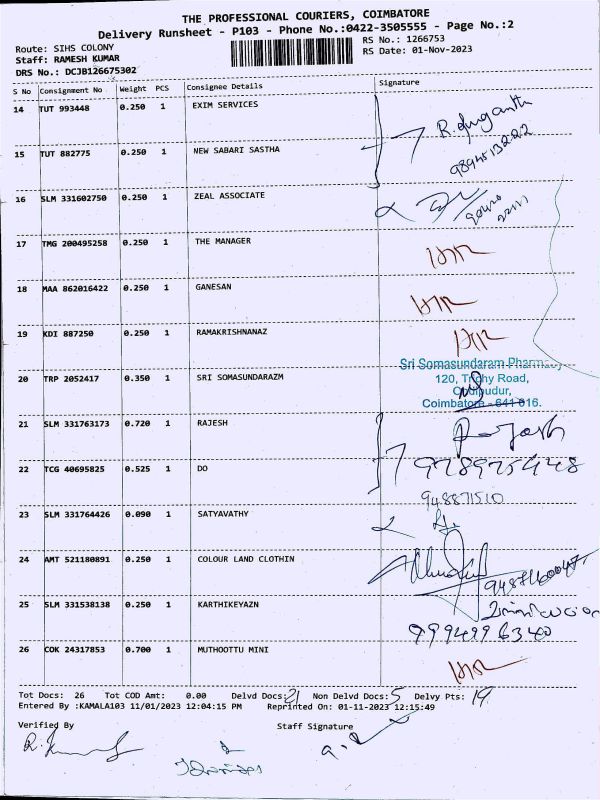 THE PROFESSIONAL COURIERS, COIMBATORE
Delivery Runsheet - P103 - Phone No.:0422-3505555 - Page No.:2
Route: SIHS COLONY
RS No.: 1266753
Staff: RAMESH KUMAR
RS Date: 01-Nov-2023
DRS No.: DCJB126675302
S No Consignment No Weight PCS Consignee Details Signature
14 TUT 993448 0.250 1 EXIM SERVICES
15 TUT 882775 0.250 1 NEW SABARI SASTHA
9894513222
16 SLM 331602750 0.250 1 ZEAL ASSOCIATE
17 TMG 200495258 0.250 1 THE MANAGER
18 MAA 862016422 0.250 1 GANESAN
19 KDI 887250 0.250 1 RAMAKRISHNANZ
Sri Somasundaram Pharmacy
20 TRP 2052417 0.350 1 SRI SOMASUNDARAZM
120, Trichy Road,
Ondipudur,
Coimbatore - 641 016.
21 SLM 331763173 0.720 1 RAJESH
22 TCG 40695825 0.525 1 DO
9789975448
948871510
23 SLM 331764426 0.090 1 SATYAVATHY
24 AMT 521180891 0.250 1 COLOUR LAND CLOTHIN
25 SLM 331538138 0.250 1 KARTHIKEYAZN
9994996340
26 COK 24317853 0.700 1 MUTHOOTTU MINI
Tot Docs: 26 Tot COD Amt: 0.00 Delvd Docs: 21 Non Delvd Docs: 5 Delvy Pts: 19
Entered By :KAMALA103 11/01/2023 12:04:15 PM Reprinted On: 01-11-2023 12:15:49
Verified By Staff Signature